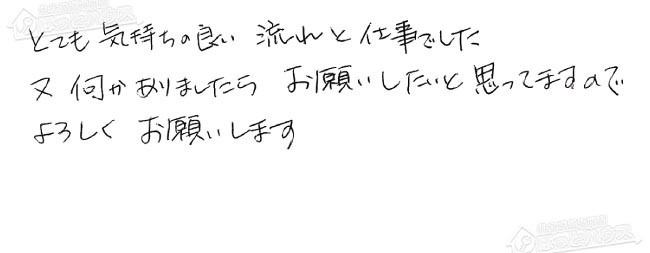 とても気持ちの良い 流れと仕事でした
又 何かありましたら お願いしたいと思ってますので
よろしく お願いします